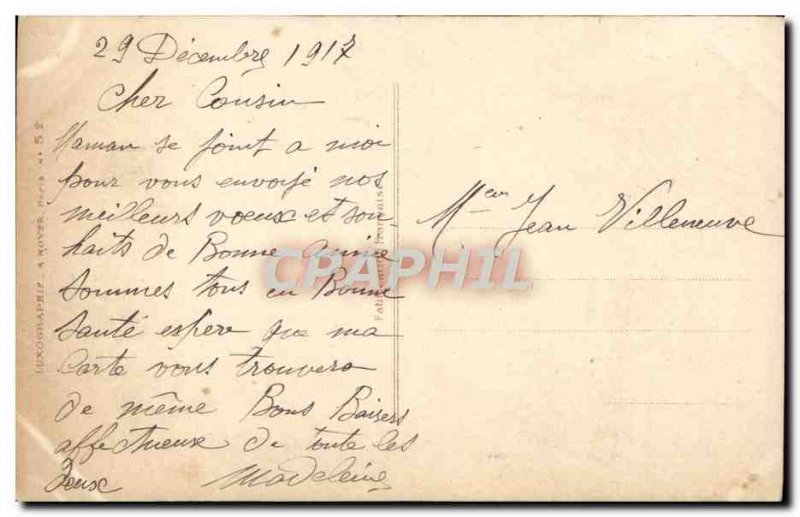 29 Décembre 1917
Cher Cousin
Maman se joint a moi
pour vous envoyé nos
meilleurs voeux et sou-
haits de Bonne année
sommes tous en Bonne
santé espere que ma
Carte vous trouvera
de même Bons Baisers
affectueux de toute les
deux Madeleine
Jean Villeneuve
LUXOGRAPHIE, A NOYER, PARIS 52
CPAPHIL